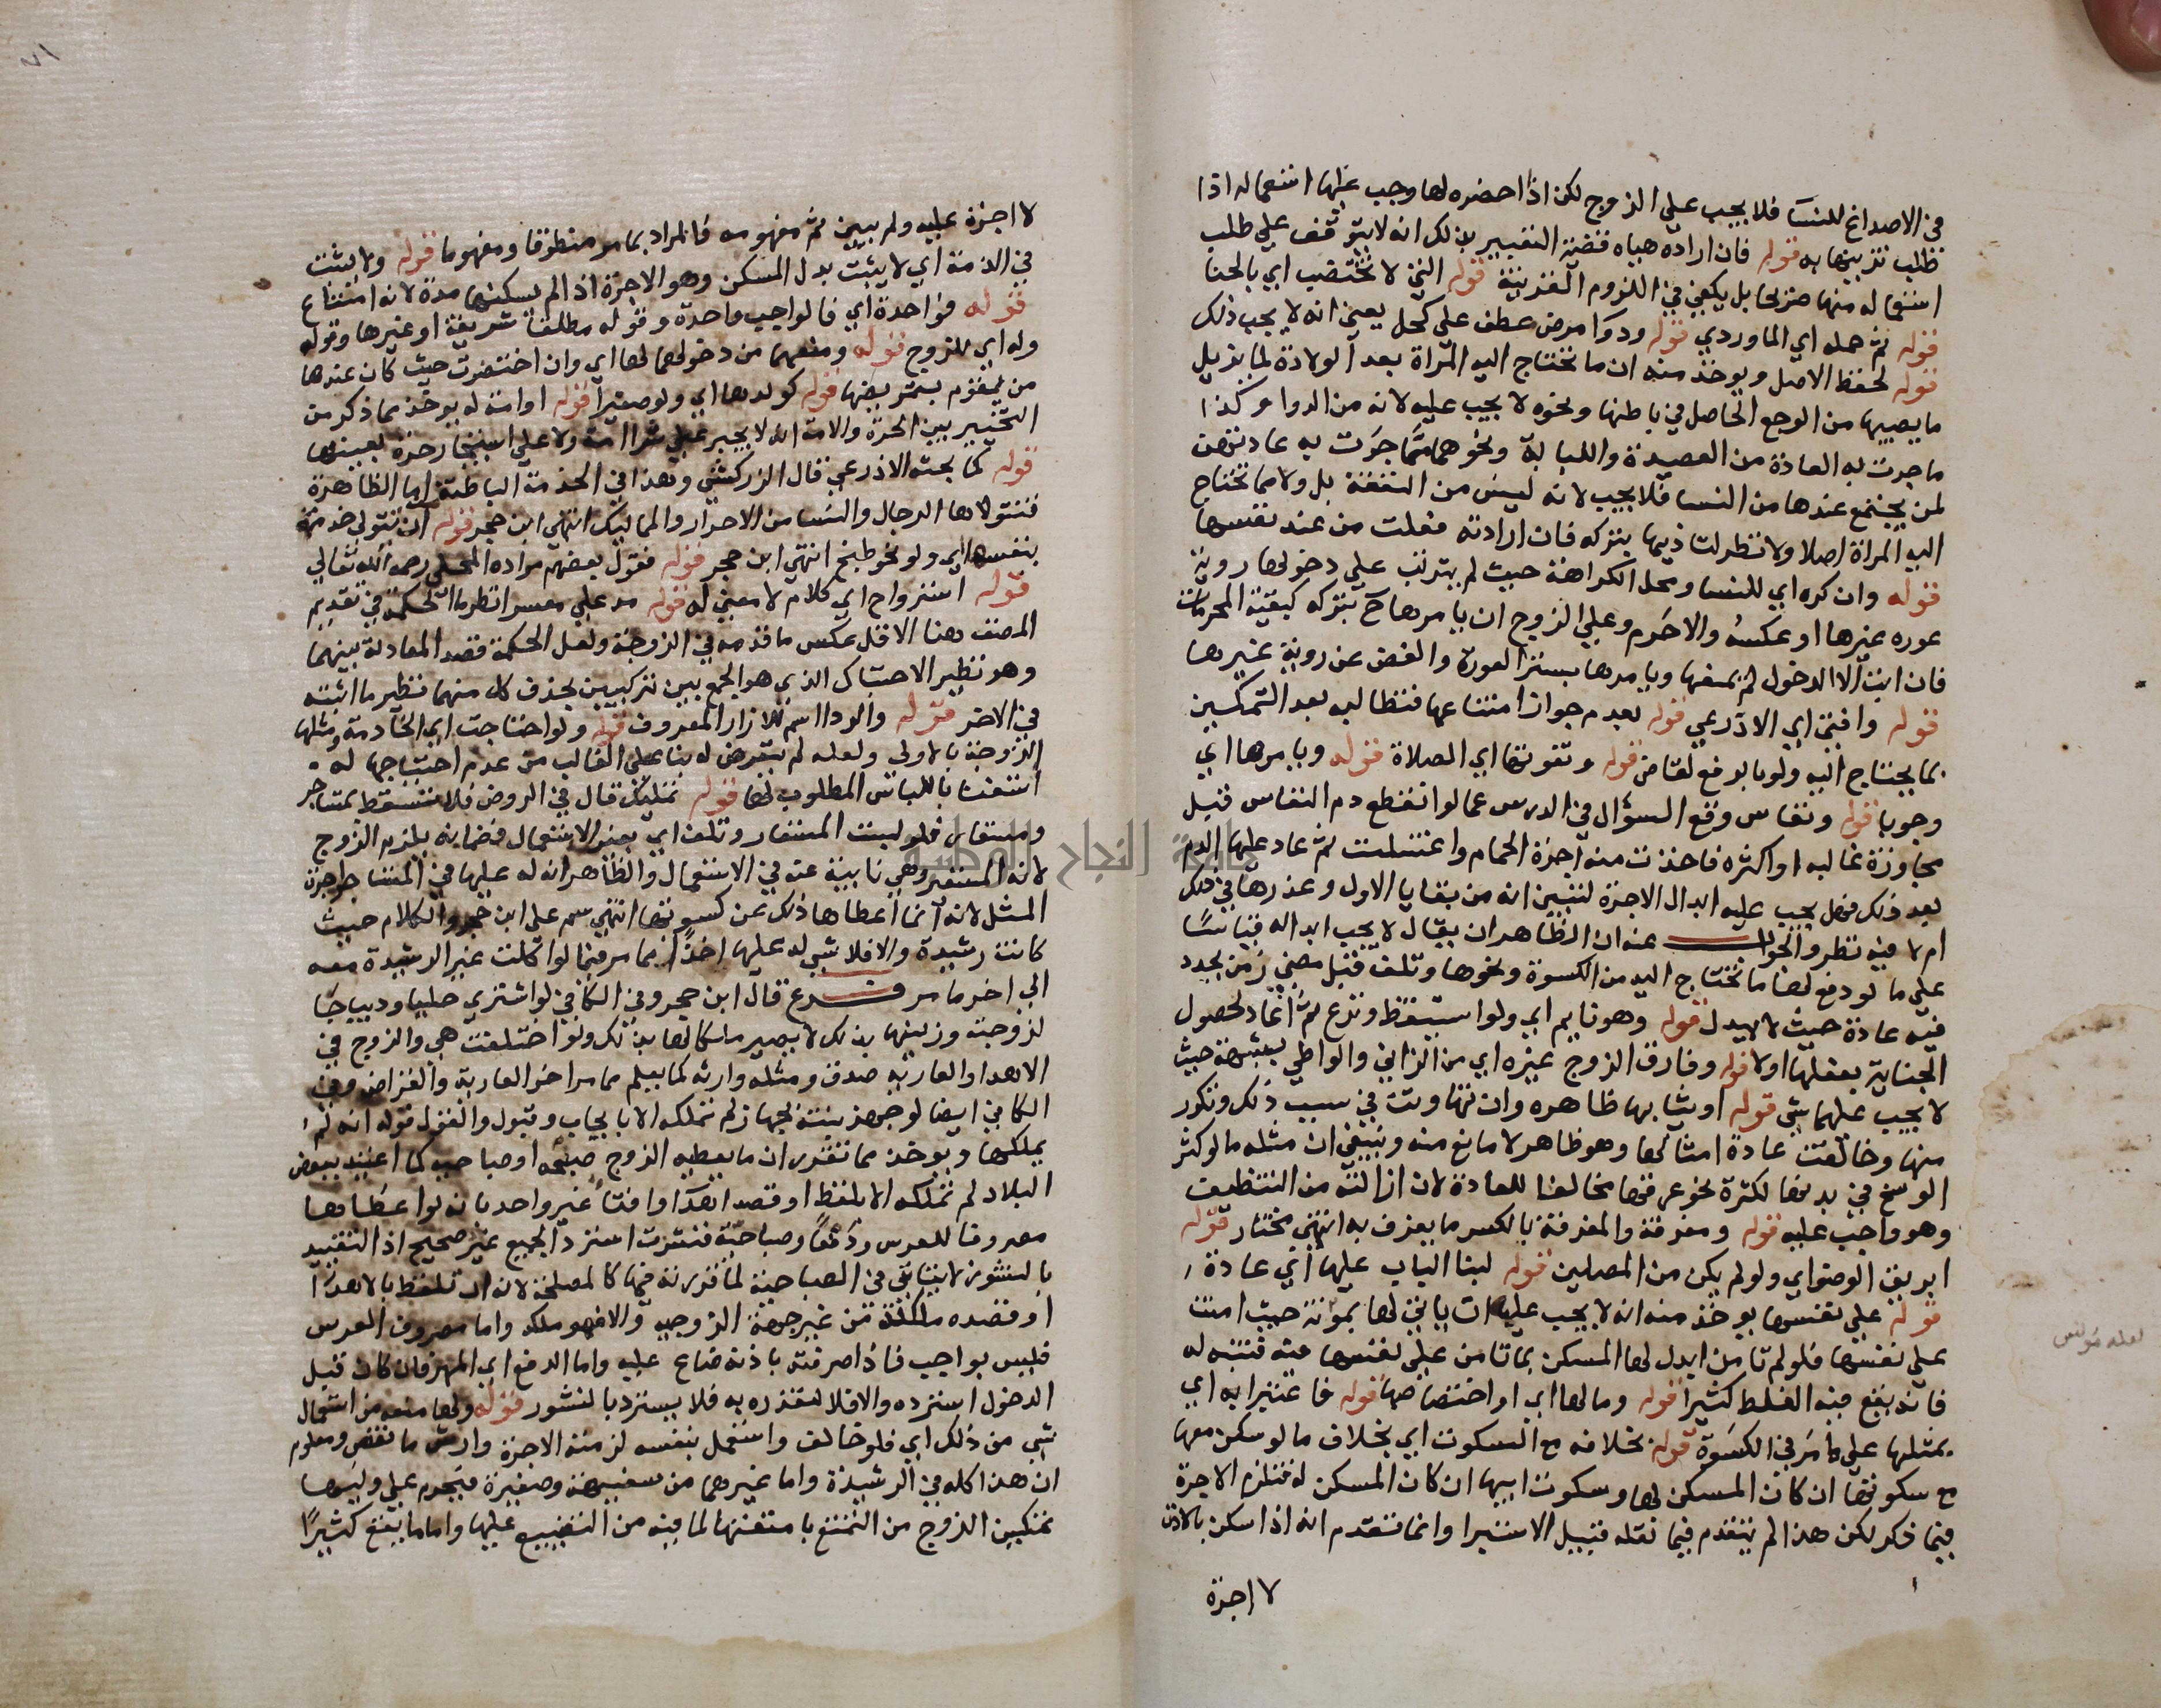 في الاصداغ للنسا فلا يجب علي الزوج لكن اذا احضره لها وجب عليها استعماله اذا
طلب تزينها به قوله فان اراده هياه قضية التعبير بذلك انه لا يتوقف علي طلب
استعماله منها صريحا بل يكفي في اللزوم القرينة قوله التي لا تختضب اي بالحنا
قوله ثم حمله اي الماوردي قوله ودوا مرض عطف علي كحل يعني انه لا يجب ذلك
قوله لحفظ الاصل ويوخذ منه ان ما تحتاج اليه المراة بعد الولادة لما يزيل
ما يصيبها من الوجع الحاصل في باطنها ونحوه لا يجب عليه لانه من الدوا وكذا
ما جرت به العادة من العصيدة واللبابة ونحوهما مما جرت به عادتهن
لمن يجتمع عندها من النسا فلا يجب لانه ليس من النفقة بل ولا مما تحتاج
اليه المراة اصلا ولا نظر لتاذيها بتركه فان ارادته فعلت من عند نفسها
قوله وان كره اي للنسا ومحل الكراهة حيث لم يترتب علي دخولها روية
عوره غيرها او عكسه والا حرم وعلي الزوج ان يامرها ح بتركه كبقية المحرمات
فان ابت الا الدخول لم يمنعها ويامرها بستر العورة والغض عن روية غيرها
قوله وافتي اي الاذرعي قوله بعدم جواز امتناعها فتطالبه بعد التمكين
بما يحتاج اليه ولو بالرفع لقاض قوله وتفوتها اي الصلاة قوله ويامرها اي
وجوبا قوله ونفاس وقع السؤال في الدرس عما لو انقطع دم النفاس قبل
مجاوزة غالبه او اكثره فاخذت منه اجرة الحمام واغتسلت ثم عاد عليها الدم
بعد ذلك فهل يجب عليه ابدال الاجرة لتبين انه من بقايا الاول وعذرها في ذلك
ام لا فيه نظر والجواب عنه ان الظاهر ان يقال لا يجب ابداله قياسا
علي ما لو دفع لها ما تحتاج اليه من الكسوة ونحوها وتلف قبل مضي زمن يجدد
فيه عادة حيث لا يبدل قوله وهو نايم اي ولو استيقظ ونزع ثم اعاد لحصول
الجنابة بفعلها اولا قوله وفارق الزوج غيره اي من الزاني والواطي بشبهة حيث
لا يجب عليهما شي قوله او ثيابها ظاهره وان تهاونت في سبب ذلك وتكرر
منها وخالفت عادة امثالها وهو ظاهر لا مانع منه وينبغي ان مثله ما لو كثر
الوسخ في بدنها لكثرة نحو عرقها مخالفا للعادة لان ازالته من التنظيف
وهو واجب عليه قوله ومغرفة والمغرفة بالكسر ما يغرف به انتهي مختار قوله
ابريق الوضو اي ولو لم يكن من المصلين قوله لبنا الباب عليها اي عادة
قوله علي نفسها يوخذ منه انه لا يجب عليه ان ياتي لها بمونة حيث امنت
علي نفسها فلو لم تامن ابدل لها المسكن بما تامن علي نفسها فيه فتنبه له
فانه يقع فيه الغلط كثيرا قوله ومالها اي او اختصاصها قوله فاعتبرا به اي
بمثلها علي ما مر في الكسوة قوله بخلافه مع السكوت اي بخلاف ما لو سكن معها
مع سكوتها ان كان المسكن لها وسكوت ابيها ان كان المسكن له فتلزم الاجرة
فيما ذكر لكن هذا لم يتقدم فيما نقله قبيل الاستبرا وانما تقدم انه اذا سكن بالاذن
لا اجرة
لا اجرة عليه ولم يبين ثم مفهومه فالمراد بما مر منطوقا ومفهوما قوله ولا يثبت
في الذمة اي لا يثبت بدل المسكن وهو الاجرة اذا لم يسكنها مدة لانه امتناع
قوله فواحدة اي فالواجب واحدة وقوله مطلقا شريفة او غيرها وقوله
وله اي للزوج قوله ومنعهما من دخولهما لها اي وان احتضرت حيث كان عندها
من يقوم بتمريضها قوله كولدها اي ولو صغيرا قوله او امته له يوخذ مما ذكر من
التخيير بين الحرة والامة انه لا يجبر علي شرا امة ولا علي استيجار حرة بعينها
قوله كما بحثه الاذرعي قال الزركشي وهذا في الخدمة الباطنة اما الظاهرة
فتتولاها الرجال والنسا من الاحرار والمماليك انتهي ابن حجر قوله ان تتولي خدمته
بنفسها اي ولو نحو طبخ انتهي ابن حجر قوله فقول بعضهم مراده المحلي رحمه الله تعالي
قوله استرواح اي كلام لا معني له قوله مد علي معسر انظر ما الحكمة في تقديم
المصنف هنا الاقل عكس ما قدمه في الزوجة ولعل الحكمة قصد المعادلة بينهما
وهو نظير الاحتباك الذي هو الجمع بين تركيبين يحذف كل منهما نظير ما اثبته
في الاخر قوله والردا اسم للازار المعروف قوله ولو احتاجت اي الخادمة ومثلها
الزوجة بالاولي ولعله لم يتعرض له بنا علي الغالب من عدم احتياجها له
استغنا باللباس المطلوب لها قوله تمليك قال في الروض فلا تسقط بمستاجر
ومستعار فلو لبست المستعار وتلف اي بغير الاستعمال فضمانه يلزم الزوج
لانه المستعير وهي نايبة عنه في الاستعمال والظاهر انه له عليها في المستاجر اجرة
المثل لانه انما اعطاها ذلك عن كسوتها انتهي سم علي ابن حجر والكلام حيث
كانت رشيدة والا فلا شي له عليها اخذا مما مر فيما لو اكلت غير الرشيدة معه
الي اخر ما مر فرع قال ابن حجر وفي الكافي لو اشتري حليا وديباجا
لزوجته وزينها بذلك لا يصير ملكا لها بذلك ولو اختلفت هي والزوج في
الاهدا والعارية صدق ومثله وارثه كما يعلم مما مر اخر العارية والقراض وفي
الكافي ايضا لو جهز بنته بجهاز لم تملكه الا بايجاب وقبول والقول قوله انه لم
يملكها ويوخذ مما تقرر ان ما يعطيه الزوج صبحة او صباحية كما اعتيد ببعض
البلاد لم تملكه الا بلفظ او قصد اهدا وافتا غير واحد بانه لو اعطاها
مصروفا للعرس ودفعا وصباحية فنشزت استرد الجميع غير صحيح اذ التقييد
بالنشوز لا يتاتي في الصباحية لما قررته فيها كالمصلحة لانه ان تلفظ بالاهدا
او قصده ملكته من غير جهة الزوجية والا فهو ملكه واما مصروف العرس
فليس بواجب فاذا صرفته باذنه ضاع عليه واما الدفع اي المهر فان كان قبل
الدخول استرده والا فلا لتقرره به فلا يسترد بالنشوز قوله ولها منعه من استعمال
شي من ذلك اي فلو خالف واستعمل بنفسه لزمته الاجرة وارش ما نقص ومعلوم
ان هذا كله في الرشيدة واما غيرهما من سفيهة وصغيرة فيحرم علي وليها
تمكين الزوج من التمتع بامتعتها لما فيه من التضييع عليها واما ما يقع كثيرا
جامعة النجاح الوطنية